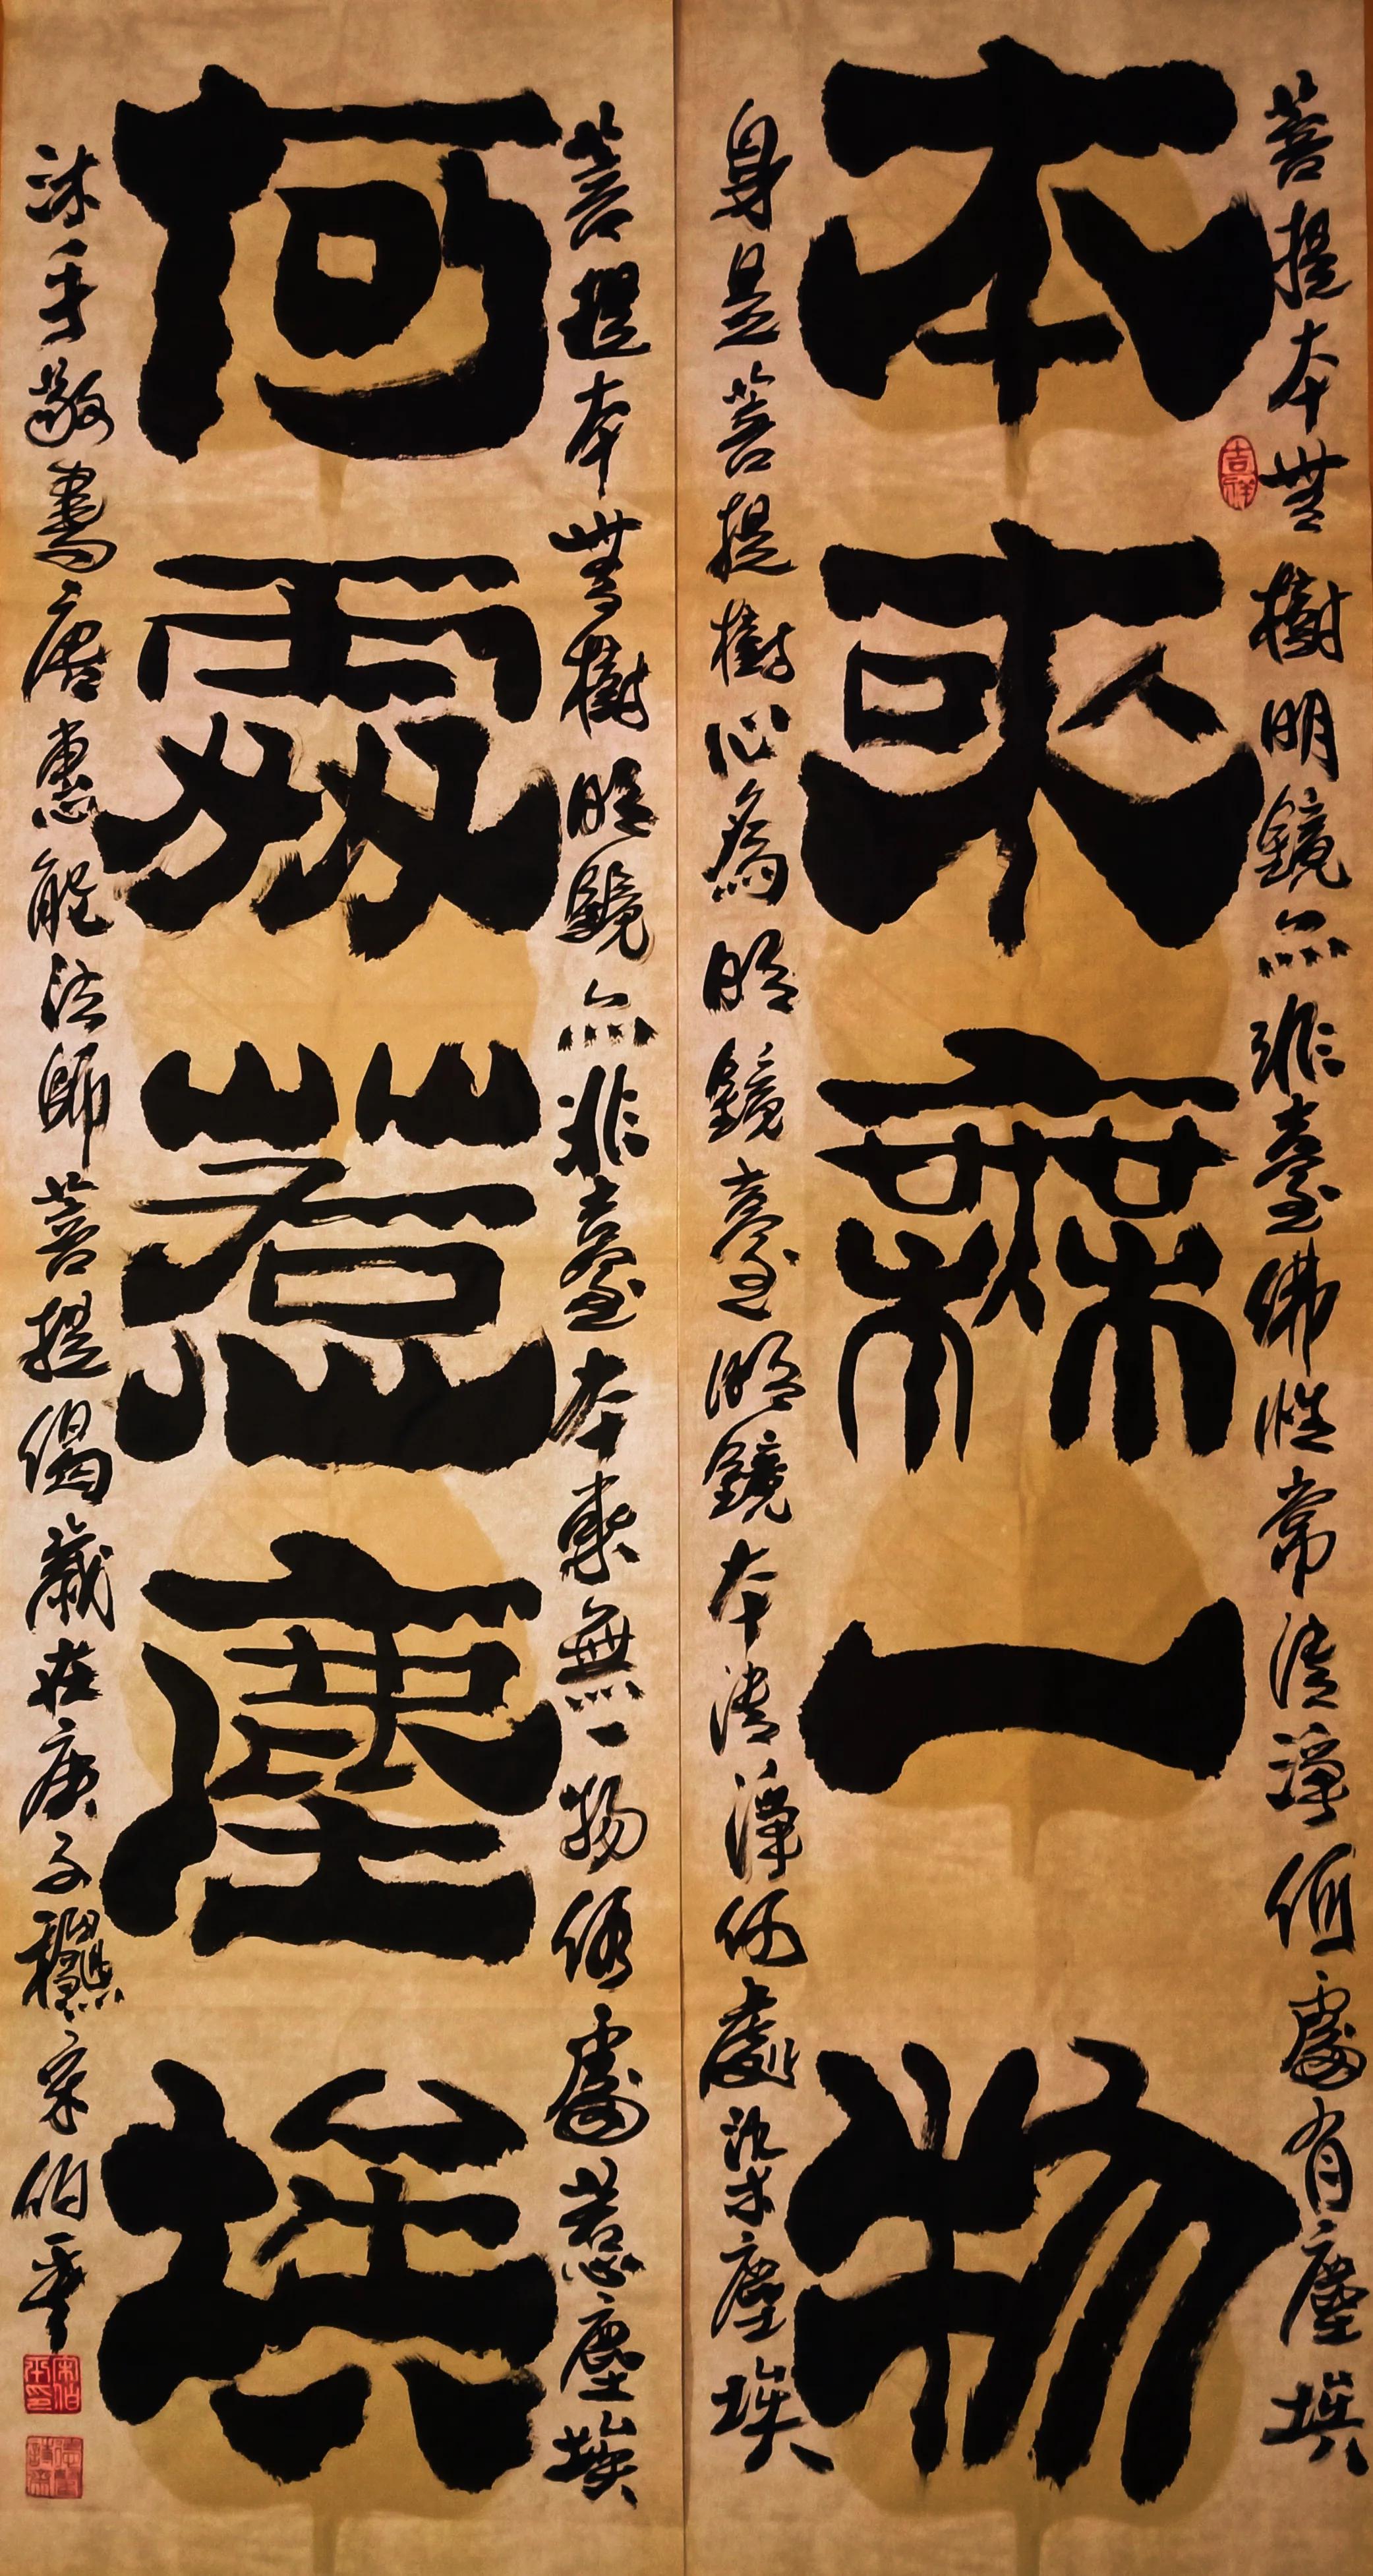 菩提本無樹明鏡亦非臺佛性常清淨何處有塵埃
吉祥
本來無一物
身是菩提樹心為明鏡臺明鏡本清淨何處染塵埃
菩提本無樹明鏡亦非臺本來無一物何處惹塵埃
何處惹塵埃
沐手敬書唐惠能法師菩提偈歲在庚子龝宋伯平
宋伯平印